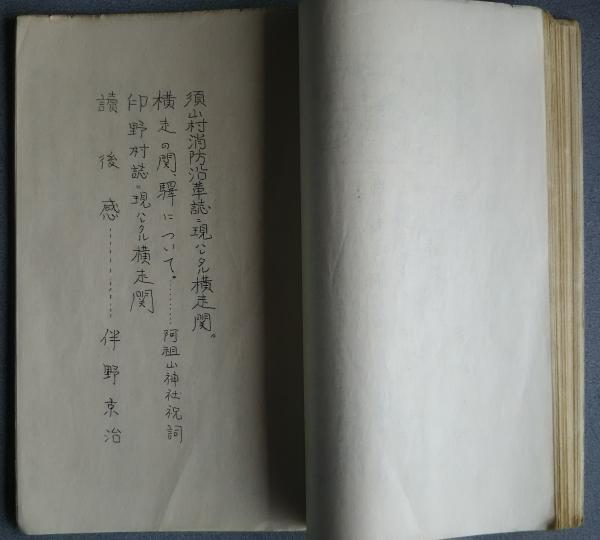 須山村消防沿革誌ニ現ハレタル横走関。
横走の関、驛について。………阿祖山神社祝詞
印野村誌ニ現ハレタル横走関
讀後感…………伴野京治